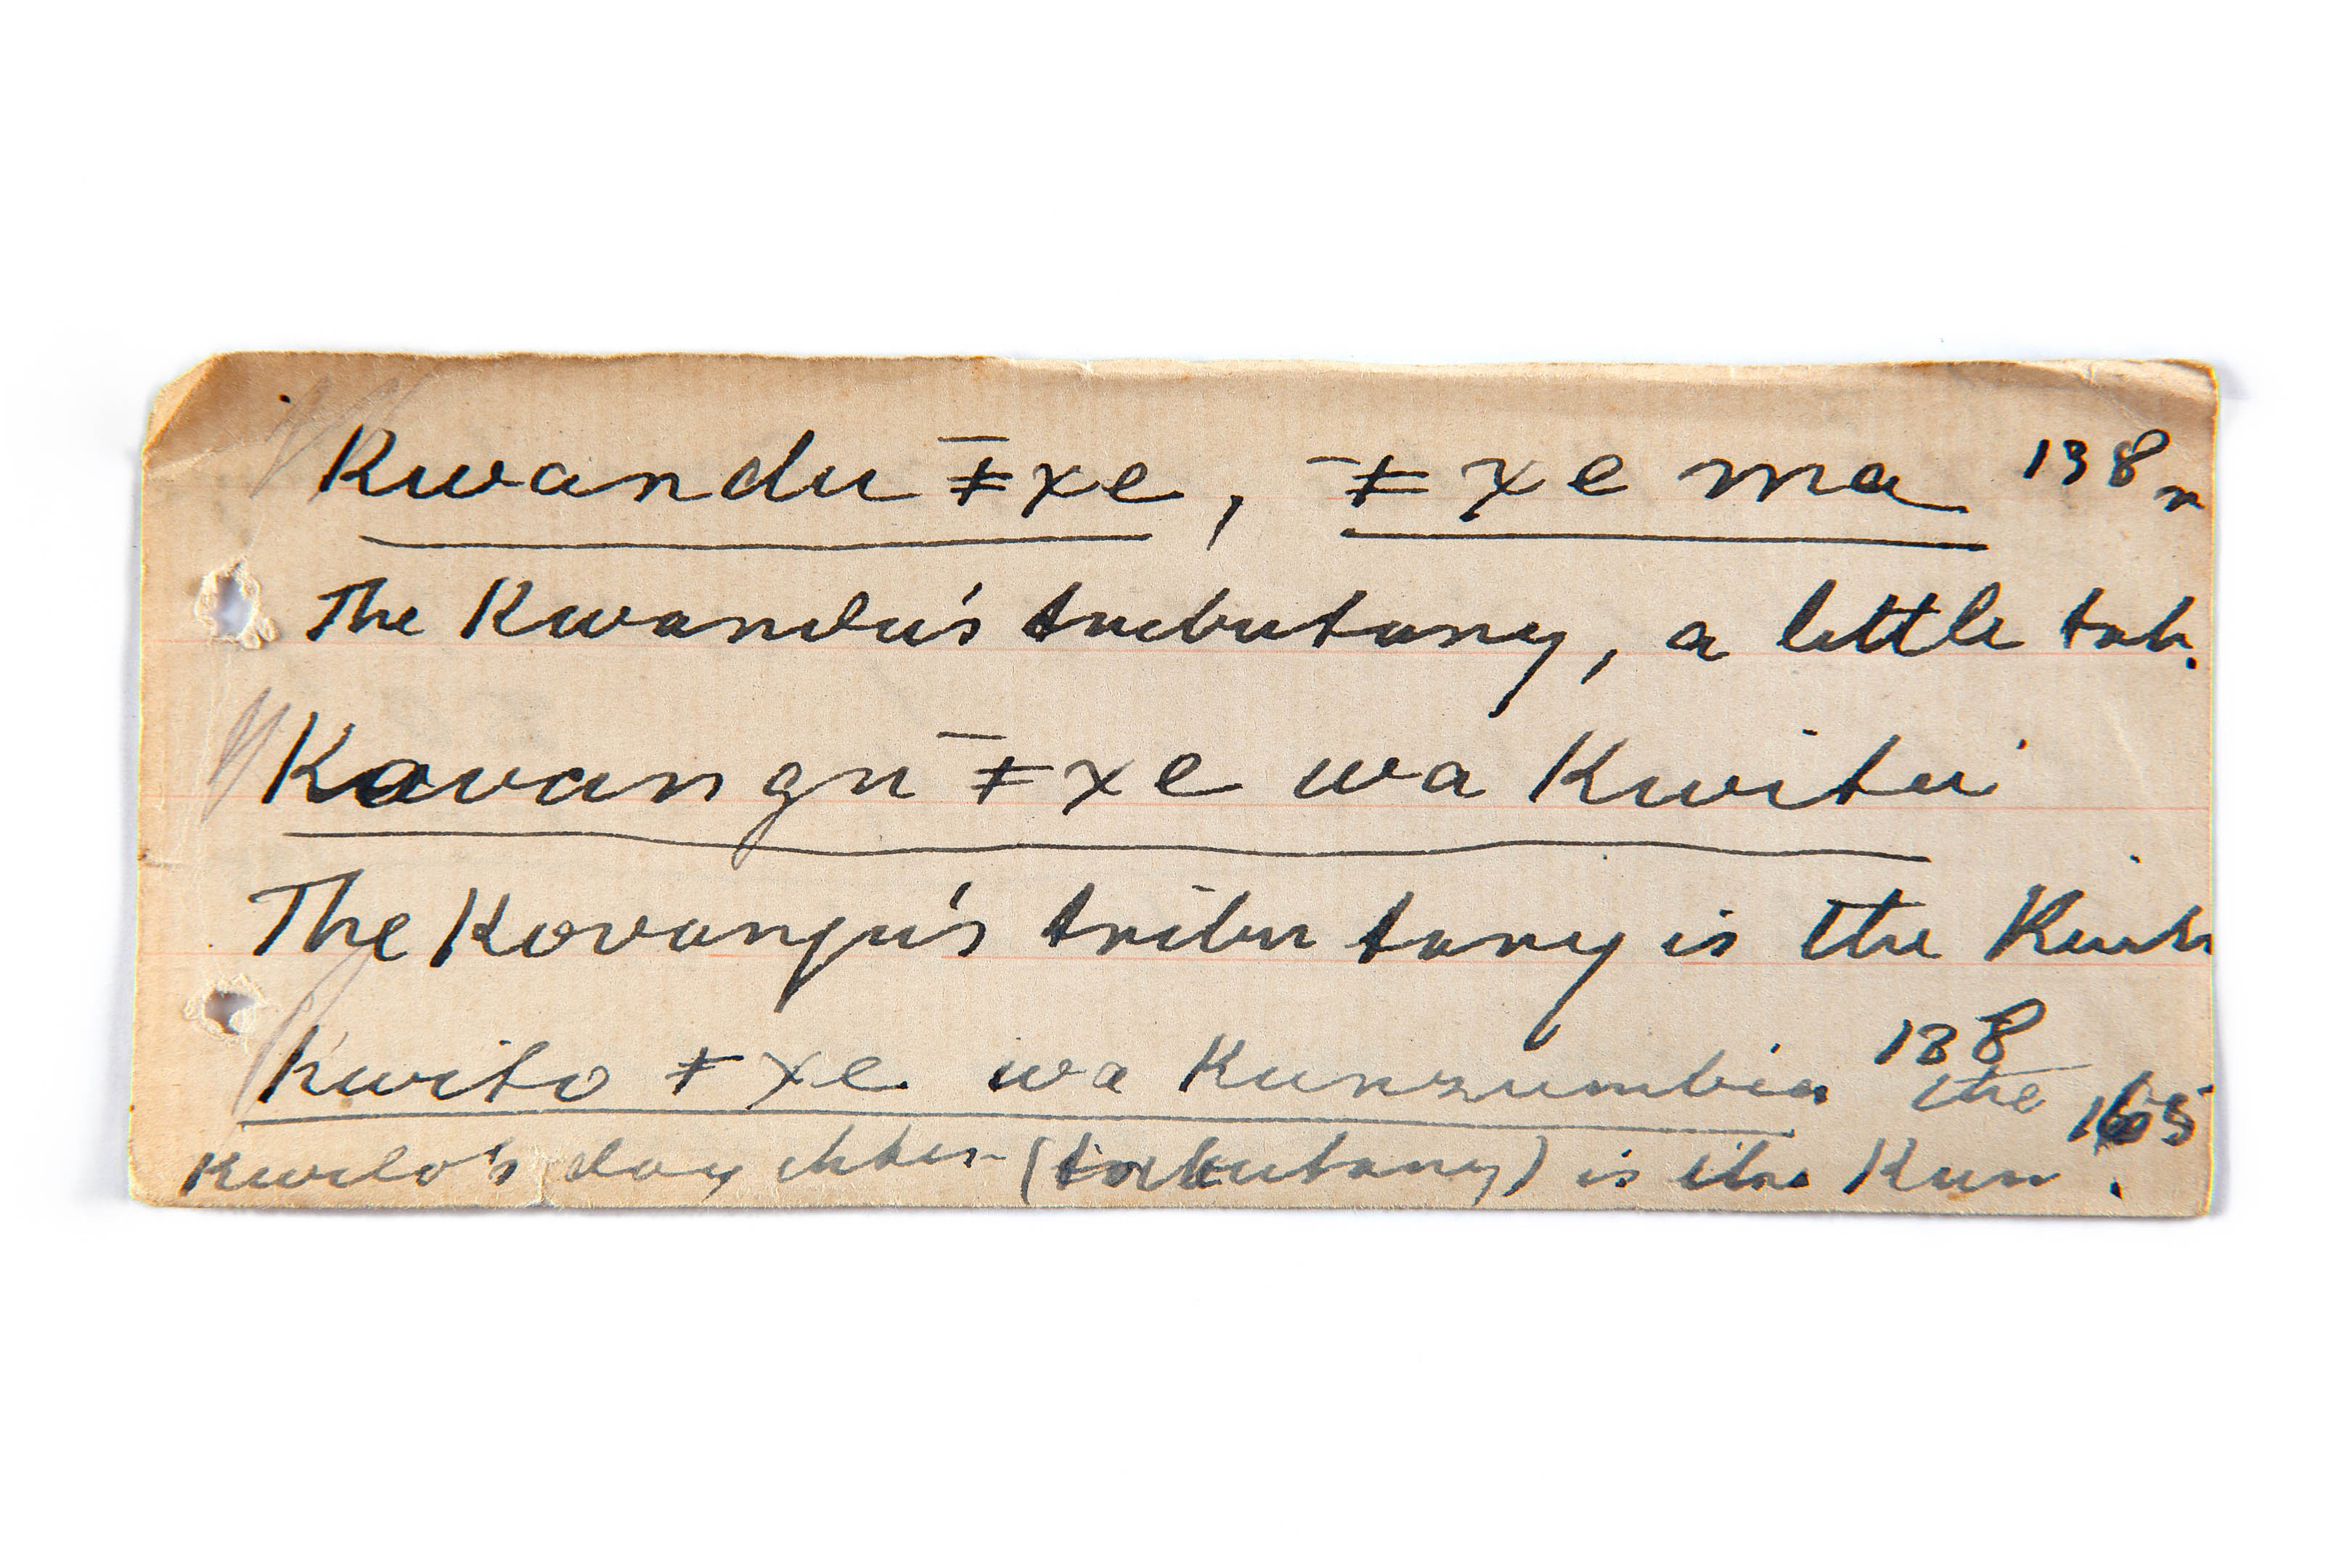 Kwandu ¯ǂxe, ¯ǂxe ma 138 r
The Kwandu's tributary, a little trib.
Kovangu ¯ǂxe wa Kwitu
The Kovangu's tributary is the Kwit
Kwito ǂxe wa Kunzumbia 138 the 165
Kwito's daughter (tributary) is the Kun.